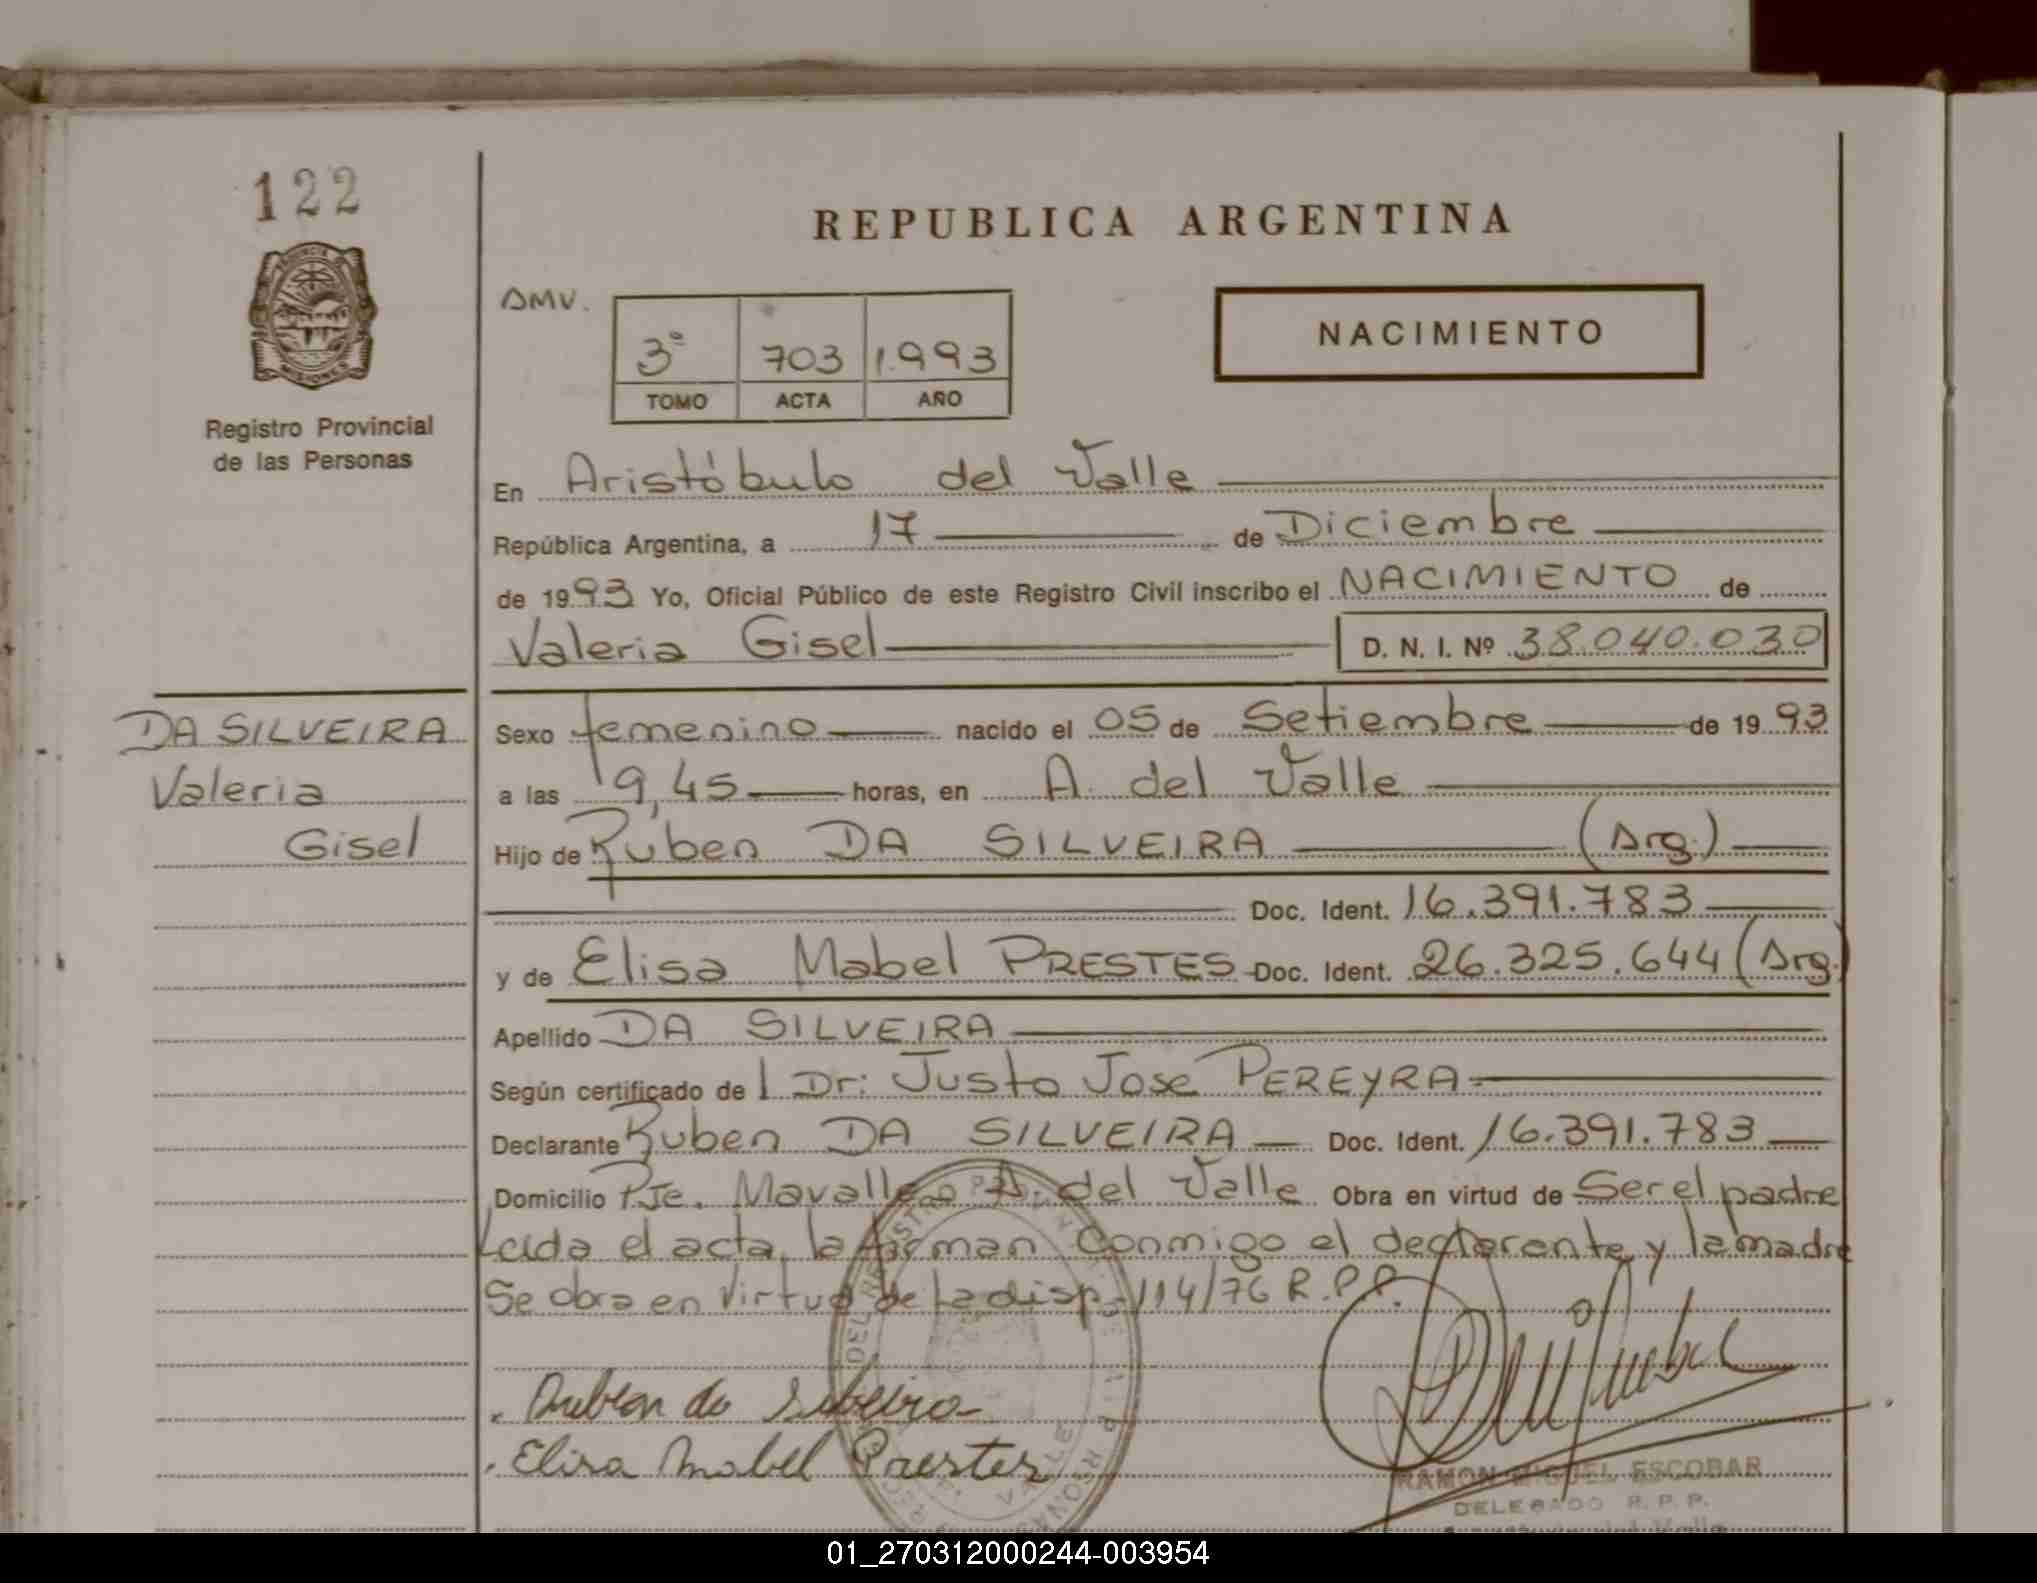 122
REPUBLICA ARGENTINA
PROVINCIA DE
MISIONES
Registro Provincial
de las Personas
AMV.
3º 703 1.993
TOMO ACTA AÑO
NACIMIENTO
En Aristóbulo del Valle
República Argentina, a 17 de Diciembre
de 1993 Yo, Oficial Público de este Registro Civil inscribo el NACIMIENTO de
Valeria Gisel D. N. I. Nº 38.040.030
DA SILVEIRA
Valeria
Gisel
Sexo femenino nacido el 05 de Setiembre de 1993
a las 9,45 horas, en A. del Valle
Hijo de Ruben DA SILVEIRA (Arg.)
Doc. Ident. 16.391.783
y de Elisa Mabel PRESTES Doc. Ident. 26.325.644 (Arg.)
Apellido DA SILVEIRA
Según certificado de l Dr: Justo Jose PEREYRA
Declarante Ruben DA SILVEIRA Doc. Ident. 16.391.783
Domicilio Pje. Mavalle A del Valle Obra en virtud de Ser el padre
Leida el acta, la firman conmigo el declarante y la madre
Se obra en virtud de la disp. 114/76 R.P.P.
Elisa Mabel Prestes
RAMON MIGUEL ESCOBAR
DELEGADO R. P. P.
01_270312000244-003954